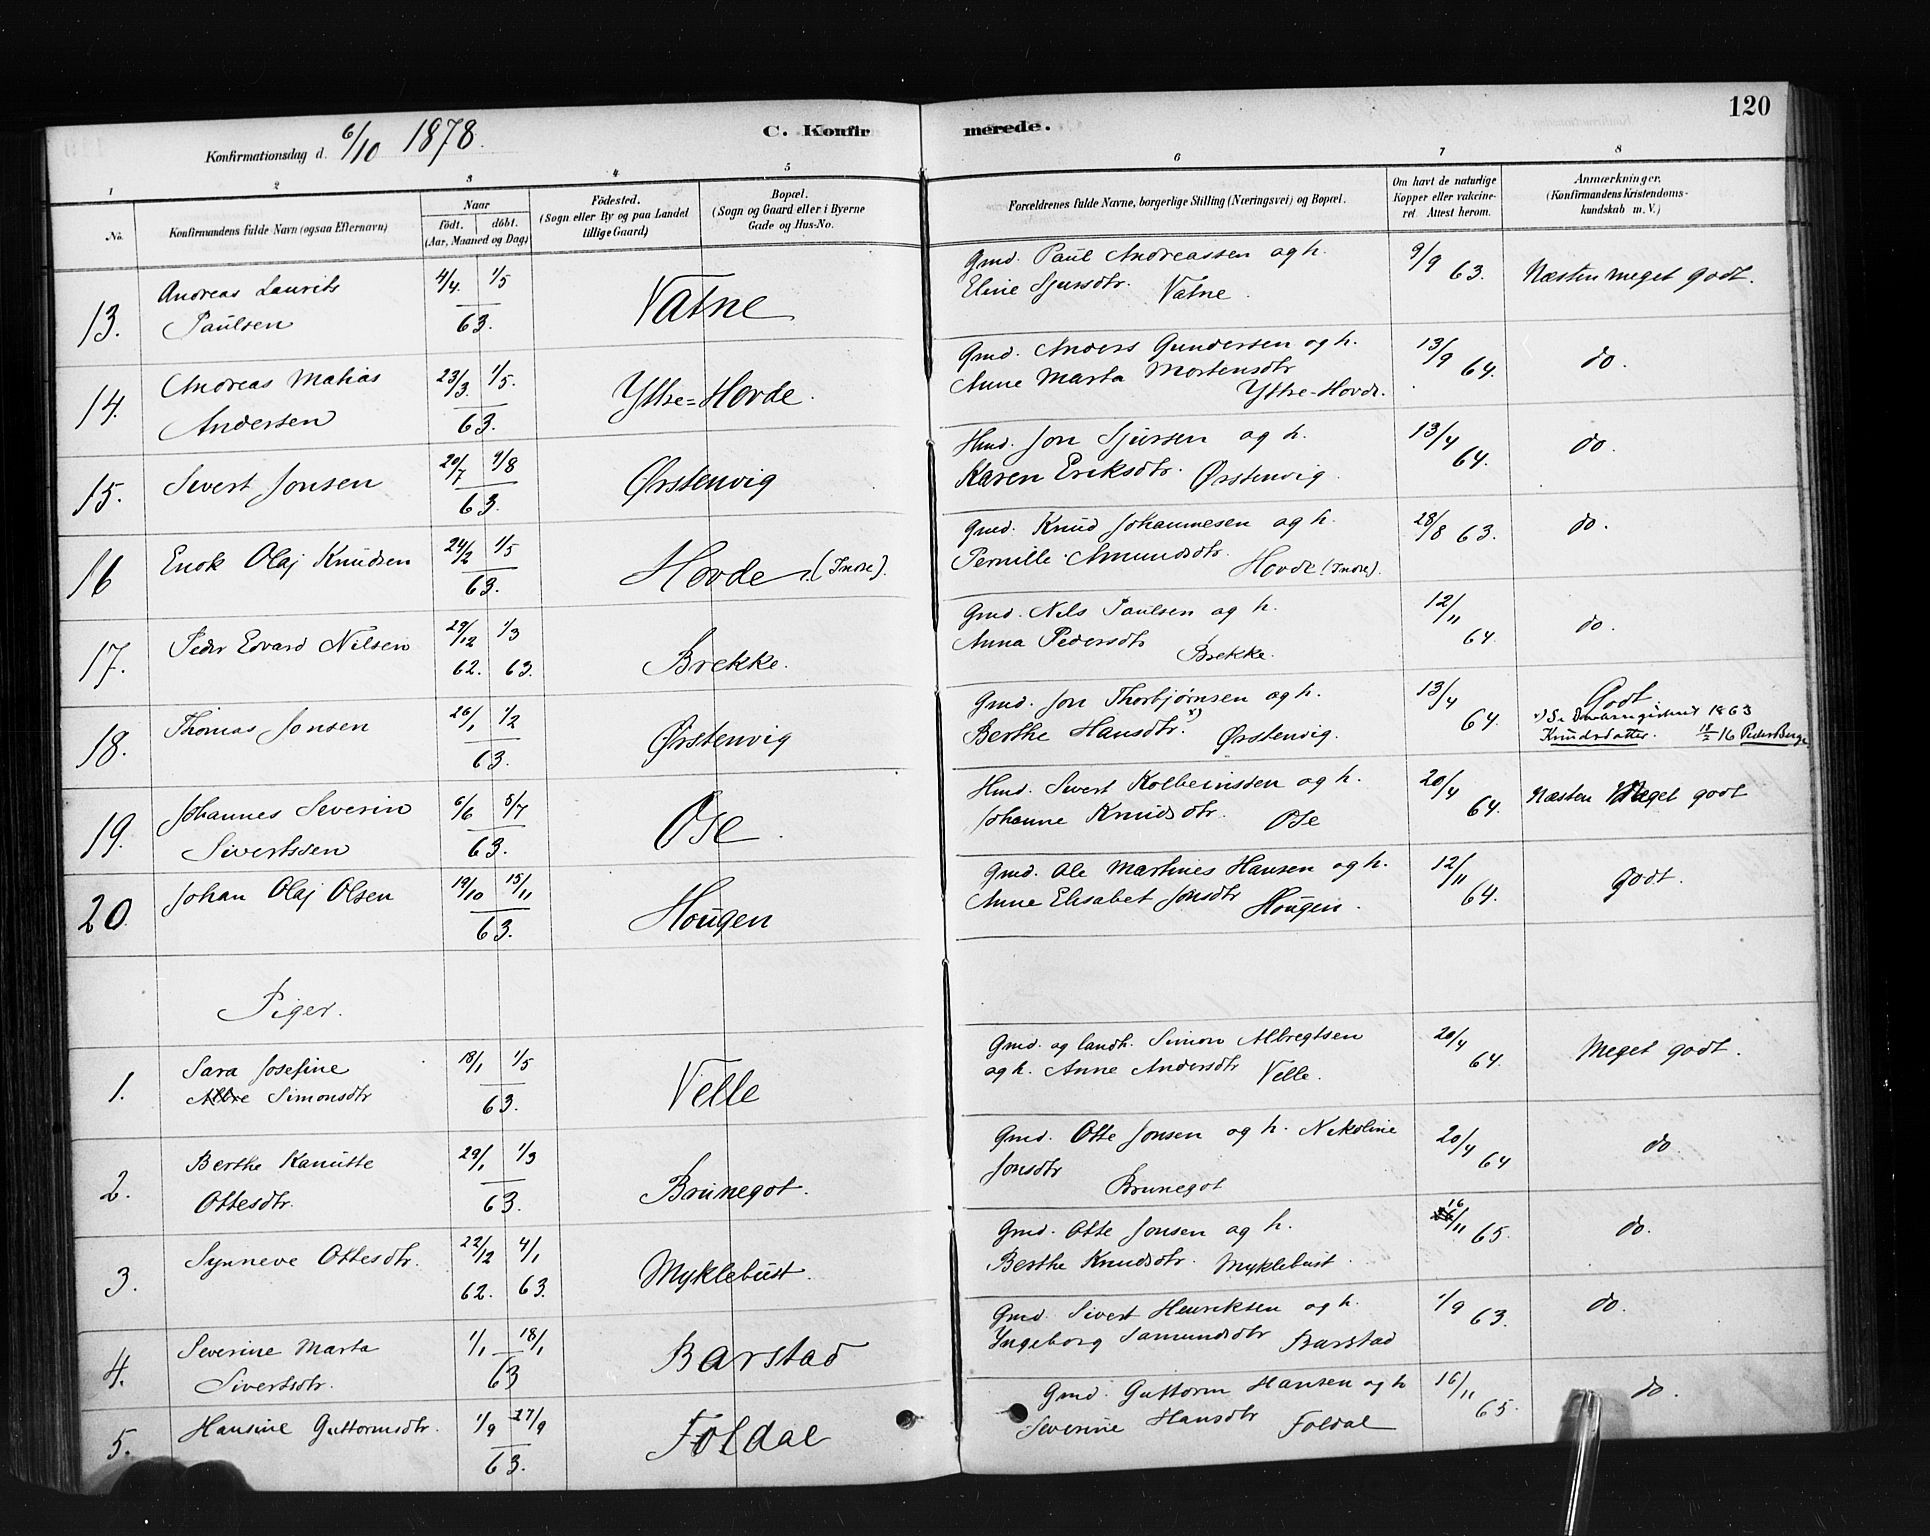 120
Konfirmationsdag d. 6/10 1878.
C. Konfirmerede.
1 2 3 4 5 6 7 8
No. Konfirmandens fulde Navn (ogsaa Efternavn) Naar Født. døbt. (Aar, Maaned og Dag) Fødested. (Sogn eller By og paa Landet tillige Gaard) Bopæl. (Sogn og Gaard eller i Byerne Gade og Hus-No. Forældrenes fulde Navne, borgerlige Stilling (Næringsvei) og Bopæl. Om havt de naturlige Kopper eller vakcineret. Attest herom. Anmærkninger. (Konfirmandens Kristendomskundskab m. V.)
13. Andreas Laurits Paulsen 4/4. 1/5 63. Vatne Gmd. Paul Andreassen og h. Eline Sjursdtr. Vatne. 9/9 63. Næsten meget godt.
14. Andreas Matias Andersen 23/3. 1/5. 63. Yttre=Hovde. Gmd. Anders Gundersen og h. Anne Marta Mortensdtr Yttre-Hovde. 13/9 64. do.
15. Sivert Jonsen 20/7 9/8 63. Ørstenvig Hmd. Jon Sjursen og h. Karen Eriksdtr. Ørstenvig. 13/4 64. do.
16 Enok Olaj Knudsen 24/2 1/5 63. Hovde. (Indre). Gmd. Knud Johannesen og h. Pernille Amundsdtr. Hovde (Indre). 28/8 63. do.
17. Peder Edvard Nilsen 29/12 62. 1/3 63. Brekke. Gmd. Nils Paulsen og h. Anna Pedersdtr Brekke. 12/11 64. do.
18. Thomas Jonsen 26/1 1/2 63. Ørstenvig Gmd. Jon Thorbjørnsen og h. Berthe Hansdtr. x) Ørstenvig. 13/4 64. Godt x) Se 1863 Knudsdatter. 18/2 16 Peder Berge
19. Johannes Severin Sivertssen 6/6 5/7 63. Ose. Hmd. Sivert Kolbeinssen og h. Johanne Knudsdtr. Ose 20/4 64. Næsten Meget godt
20 Johan Olaj Olsen 19/10 15/11 63. Hougen Gmd. Ole Martines Hansen og h. Anne Elisabet Jonsdtr Hougen. 12/11 64. Godt.
Piger.
1. Sara Josefine Albre Simonsdtr 18/1 1/5 63. Velle Gmd. og landh. Simon Albregtsen og h. Anne Andersdtr Velle. 20/4 64. Meget godt.
2. Berthe Kanutte Ottesdtr. 29/1 1/3 63. Brunegot. Gmd. Otte Jonsen og h. Nikoline Jonsdtr Brunegot 20/4 64 do
3. Synneve Ottesdtr. 22/12 62. 4/1 63. Myklebust. Gmd. Otte Jonsen og h. Berthe Knudsdtr. Myklebust. 16/11 65. do.
4. Severine Marta Sivertsdtr. 1/1 18/1 63 Barstad Gmd. Sivert Henriksen og h. Yngeborg Samundsdtr Barstad 1/9 63. do.
5. Hansine Guttormsdtr. 1/9 27/9 63. Foldal Gmd. Guttorm Hansen og h Severine Hansdtr Foldal 16/11 65. do.